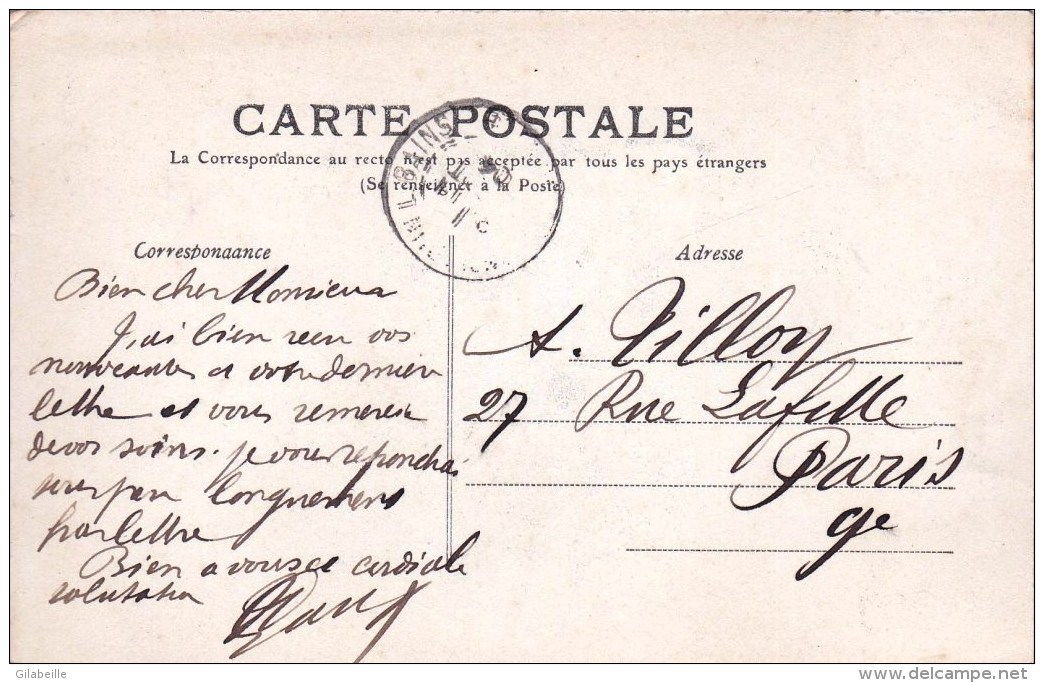 CARTE POSTALE
La Correspondance au recto n'est pas acceptée par tous les pays étrangers
(Se renseigner à la Poste)
Correspondance
Bien cher Monsieur
J'ai bien reçu vos
nouveautés et votre dernière
lettre et vous remercie
de vos soins. je vous répondrai
sous peu longuement
par lettre
Bien a vous et cordiale
salutation
Adresse
A. Tilloy
27 Rue Lafitte
Paris
9e
BAINS
Gilabeille
delcampe.net